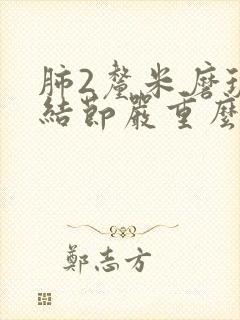 肺2釐米磨玻
結節嚴重麼
鄭志方